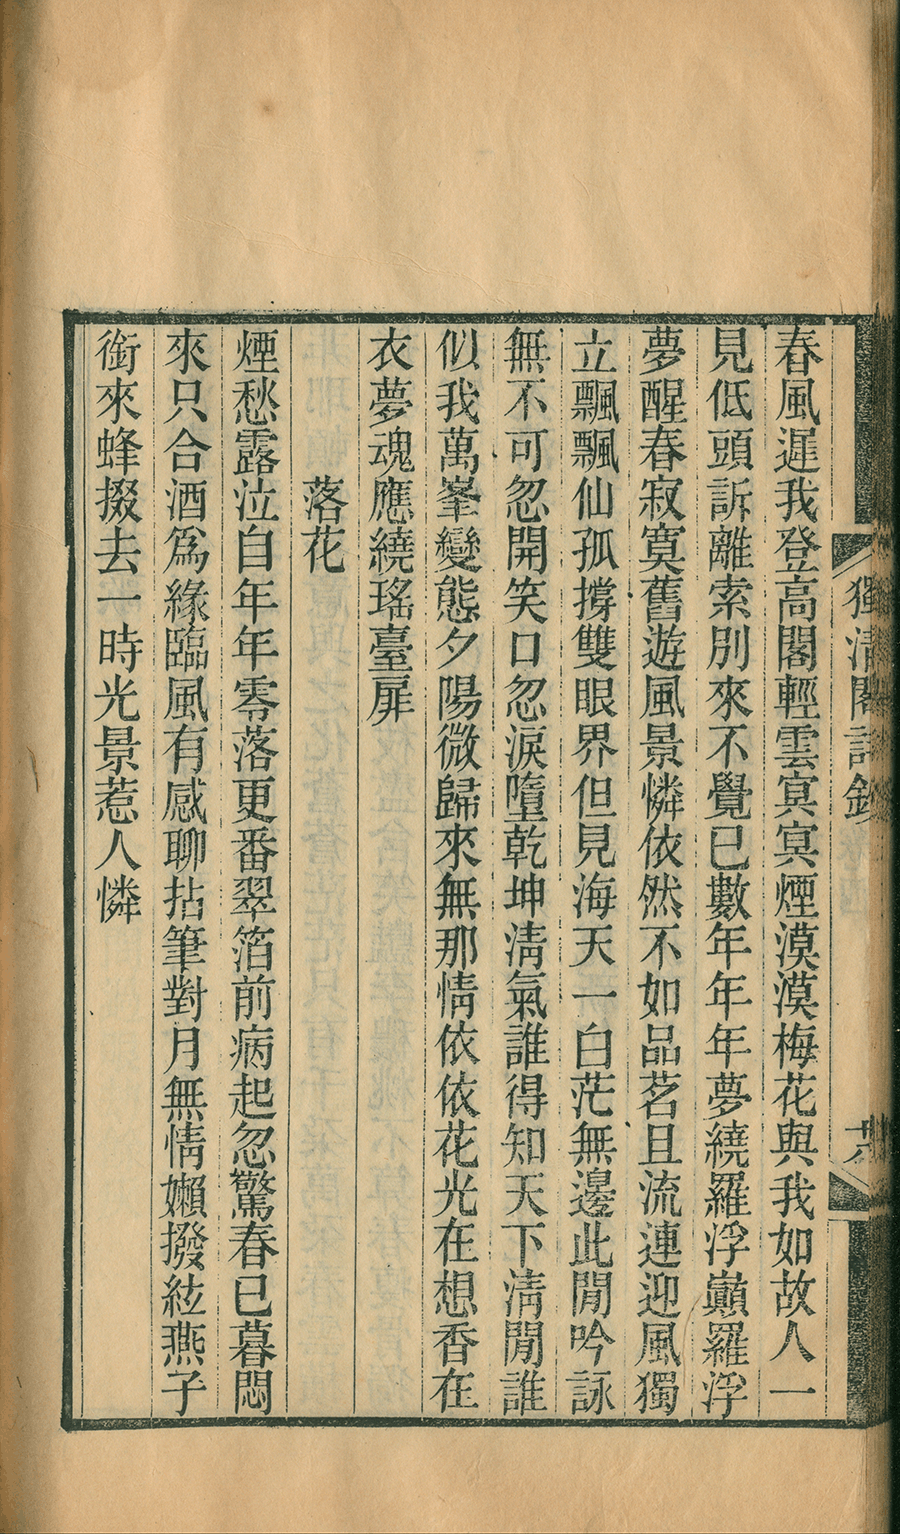 獨清閣詩鈔
六
春風遲我登高閣輕雲冥冥煙漠漠梅花與我如故人一
見低頭訴離索別來不覺已數年年年夢繞羅浮巔羅浮
夢醒春寂寞舊遊風景憐依然不如品茗且流連迎風獨
立飄飄仙孤撐雙眼界但見海天一白茫無邊此閒吟詠
無不可忽開笑口忽淚墮乾坤清氣誰得知天下清閒誰
似我萬峯變態夕陽微歸來無那情依依花光在想香在
衣夢魂應繞瑤臺扉
落花
煙愁露泣自年年零落更番翠箔前病起忽驚春已暮悶
來只合酒爲緣臨風有感聊拈筆對月無情嬾撥絃燕子
銜來蜂掇去一時光景惹人憐